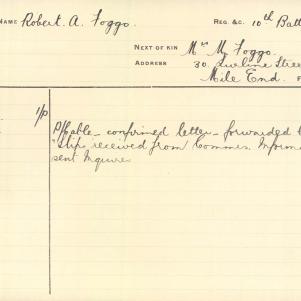 NAME Robert. A. Foggo. REG. &C. 10th Batt
NEXT OF KIN Mrs M. Foggo.
ADDRESS 30. Stree
Mile End.
1/p
cable - confirmed letter - forwarded
"Slips received from Commiss. Informa
sent